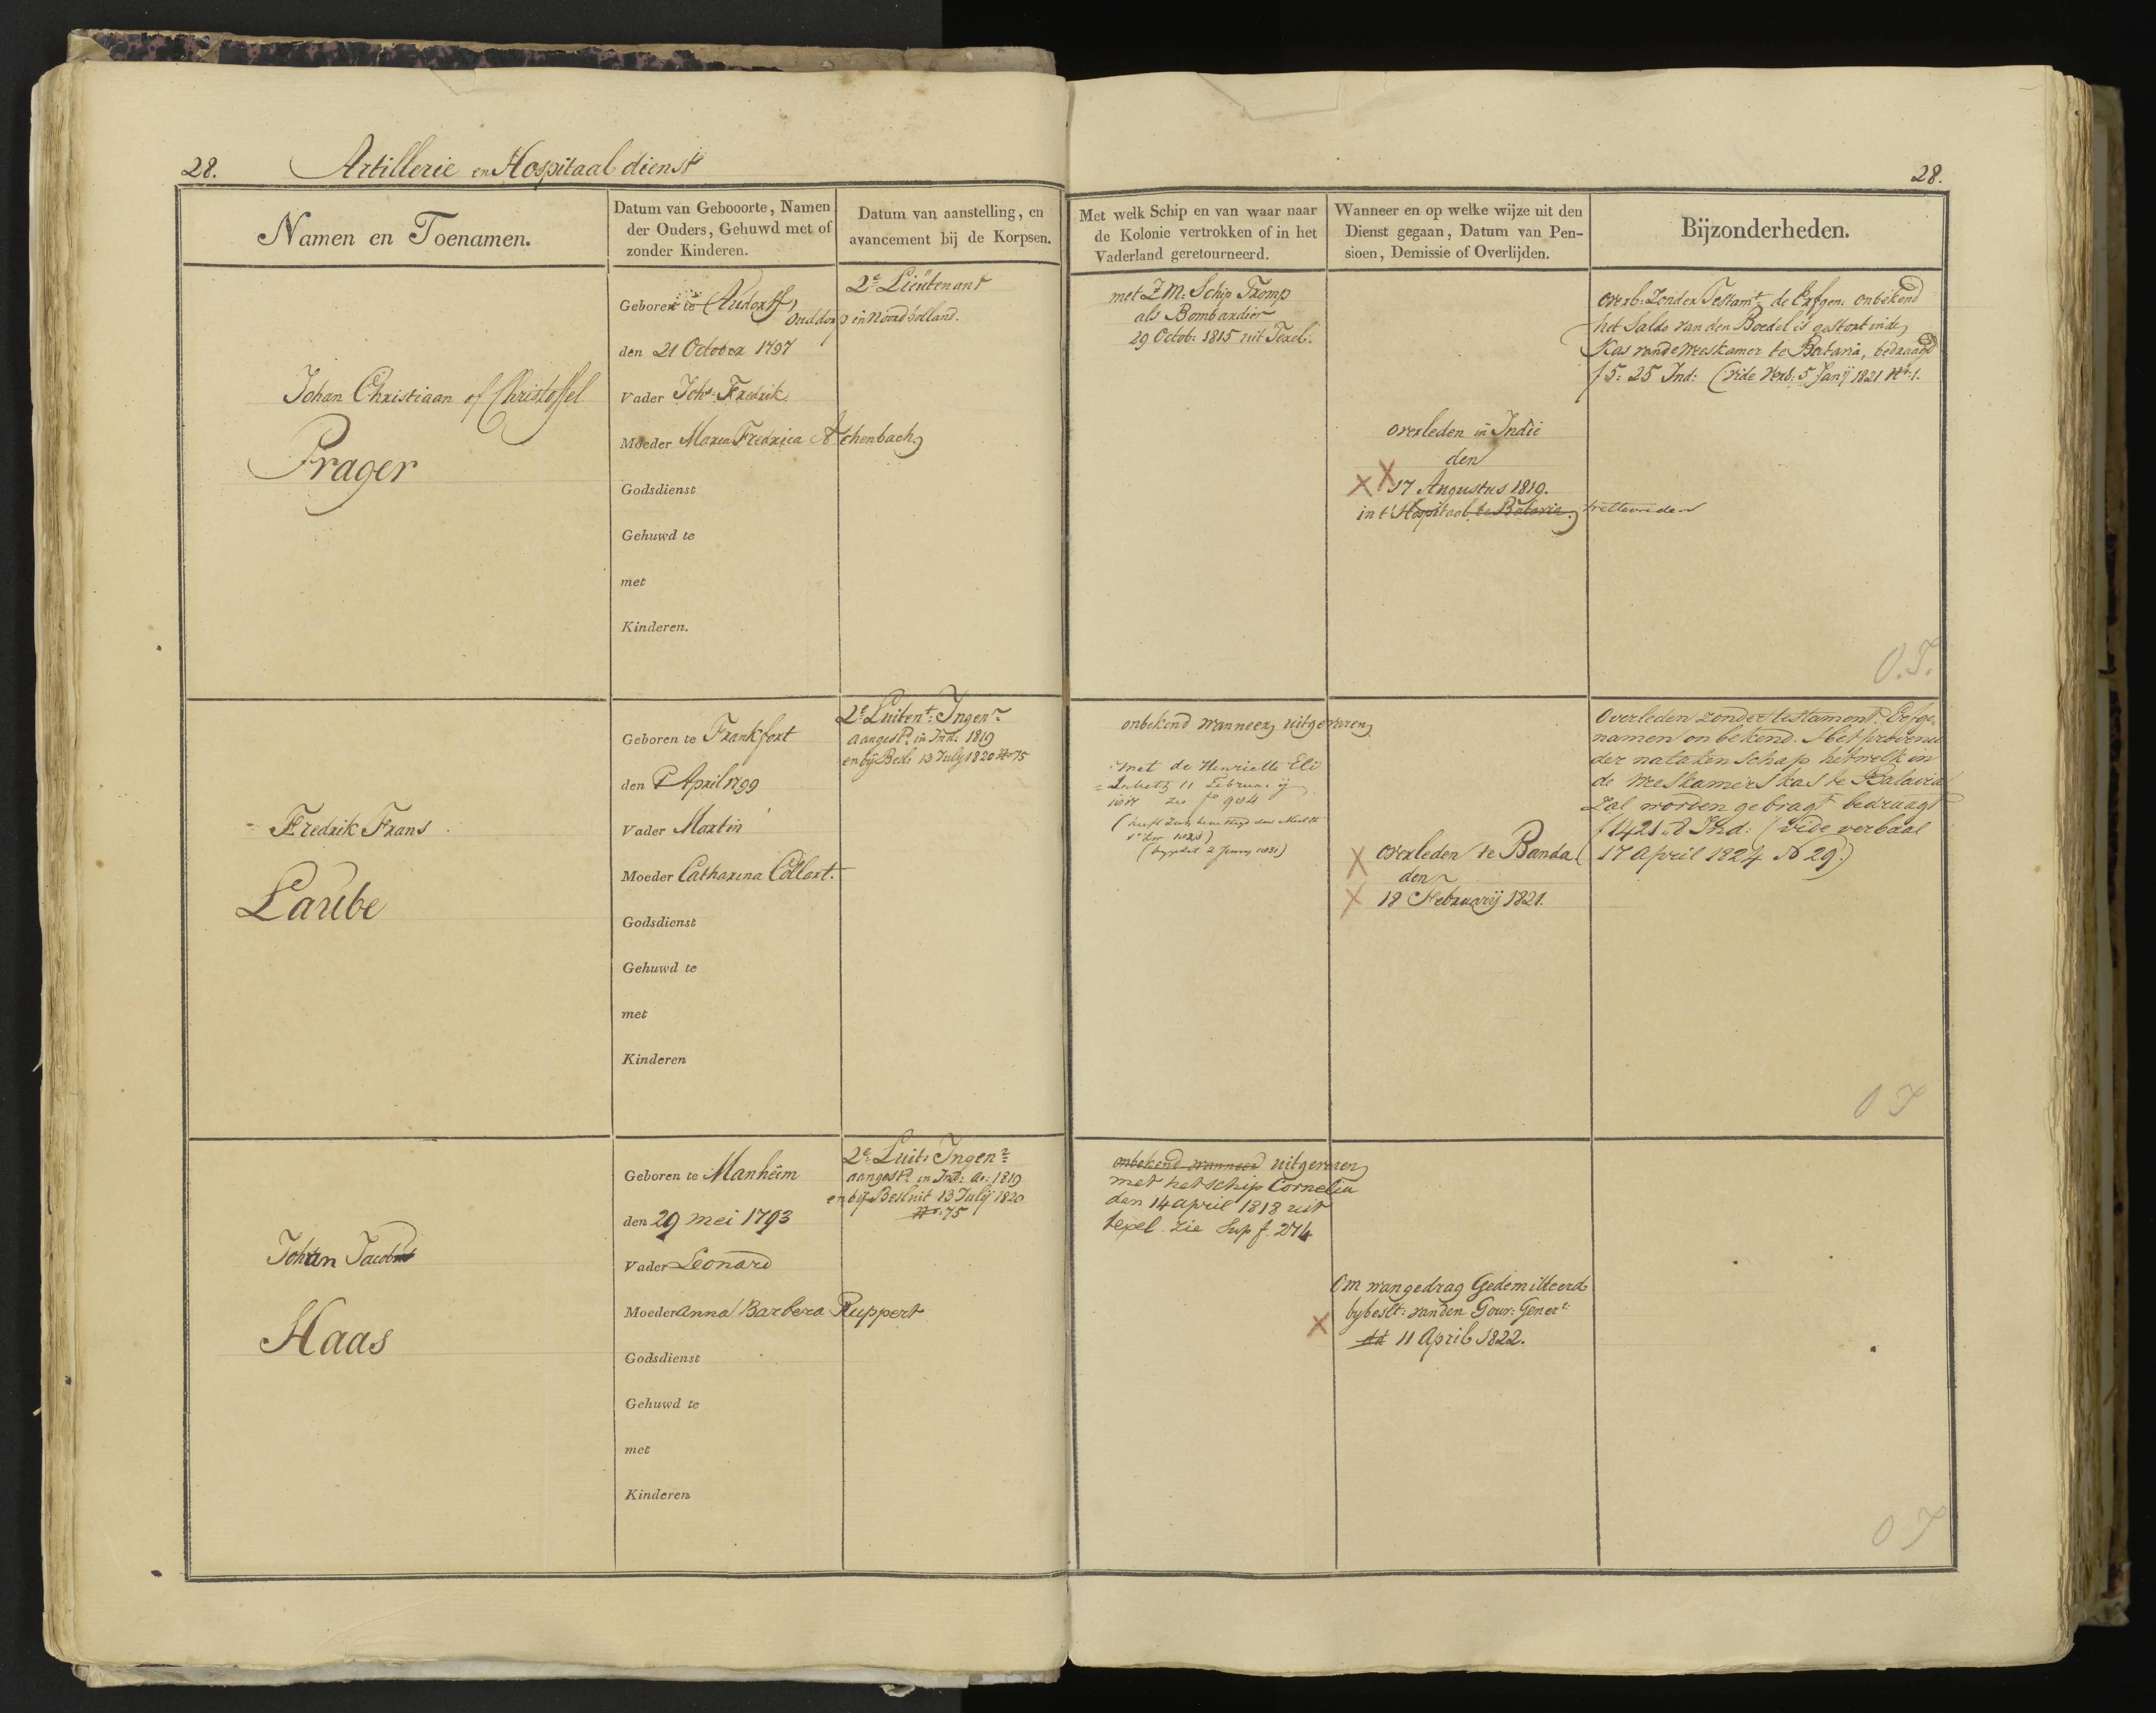 28. Artillerie en Hospitaal dienst
28.
Namen en Toenamen.
Datum van Gebooorte, Namen
der Ouders, Gehuwd met of
zonder Kinderen.
Datum van aanstelling, en
avancement bij de Korpsen.
Met welk Schip en van waar naar
de Kolonie vertrokken of in het
Vaderland geretourneerd.
Wanneer en op welke wijze uit den
Dienst gegaan, Datum van Pen-
sioen, Demissie of Overlijden.
Bijzonderheden.
Johan Christiaan of Christoffel
Prager
Geboren te Audorff,
Ouddorp in Noordholland.
den 21 October 1797
Vader Johs: Fredrik.
Moeder Maria Fredrica Achenbach,
Godsdienst
Gehuwd te
met
Kinderen.
2e Lieutenant
met Z M: Schip Tromp
als Bombardier
29 Octob: 1815 uit Texel.
overleden in Indie
den
17 Augustus 1819.
in t' Hospitaal te Batavia, Weltevreden
overl: Zonder Testamt: de Erfgen: onbekend
het Saldo van den Boedel is gestort in de
Kas van de Weeskamer te Batavia, bedraagd
f 5: 25 Ind: (vide Verb: 5 Janij 1821 No: 1.
O.I.
Fredrik Frans
Laube
Geboren te Frankfort
den 1 April 1799
Vader Martin
Moeder Catharina Collart.
Godsdienst
Gehuwd te
met
Kinderen
2e Luitent: Ingenr
aangestd: in Ind: 1819
en bij Besl: 13 July 1820 No 75
onbekend wanneer uitgevaren
met de Henriette Eli
= Lsabeth 11 Februarij
1817 zie fo
overleden te Banda
den
18 Februarij 1821.
Overleden zonder testament. Erfge-
namen onbekend. Het provenu
der nalatenschap hetwelk in
de Weeskamers kas te Batavia
Zal worden gebragt bedraagt
f 1421.8 Ind: (vide verbaal
17 April 1824 No 29.)
O I
Johan Jacob
Haas
Geboren te Manheim
den 29 mei 1793
Vader Leonard
Moeder Anna Barbera Ruppert
Godsdienst
Gehuwd te
met
Kinderen
2e Luit: Ingenr
aangestd: in Ind: Ao: 1819
en bij Besluit 13 July 1820
No. 75
onbekend wanneer uitgevaren
met het schip Cornelia
den 14 april 1818 uit
texel. zie Sup f. 274
Om wangedrag Gedemitteerd
by beslt: van den Gouv: Generl:
dd 11 April 1822.
O I